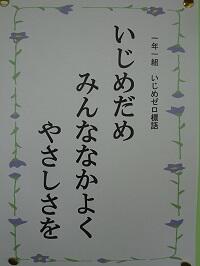 一年一組 いじめゼロ標語
いじめだめ
みんななかよく
やさしさを